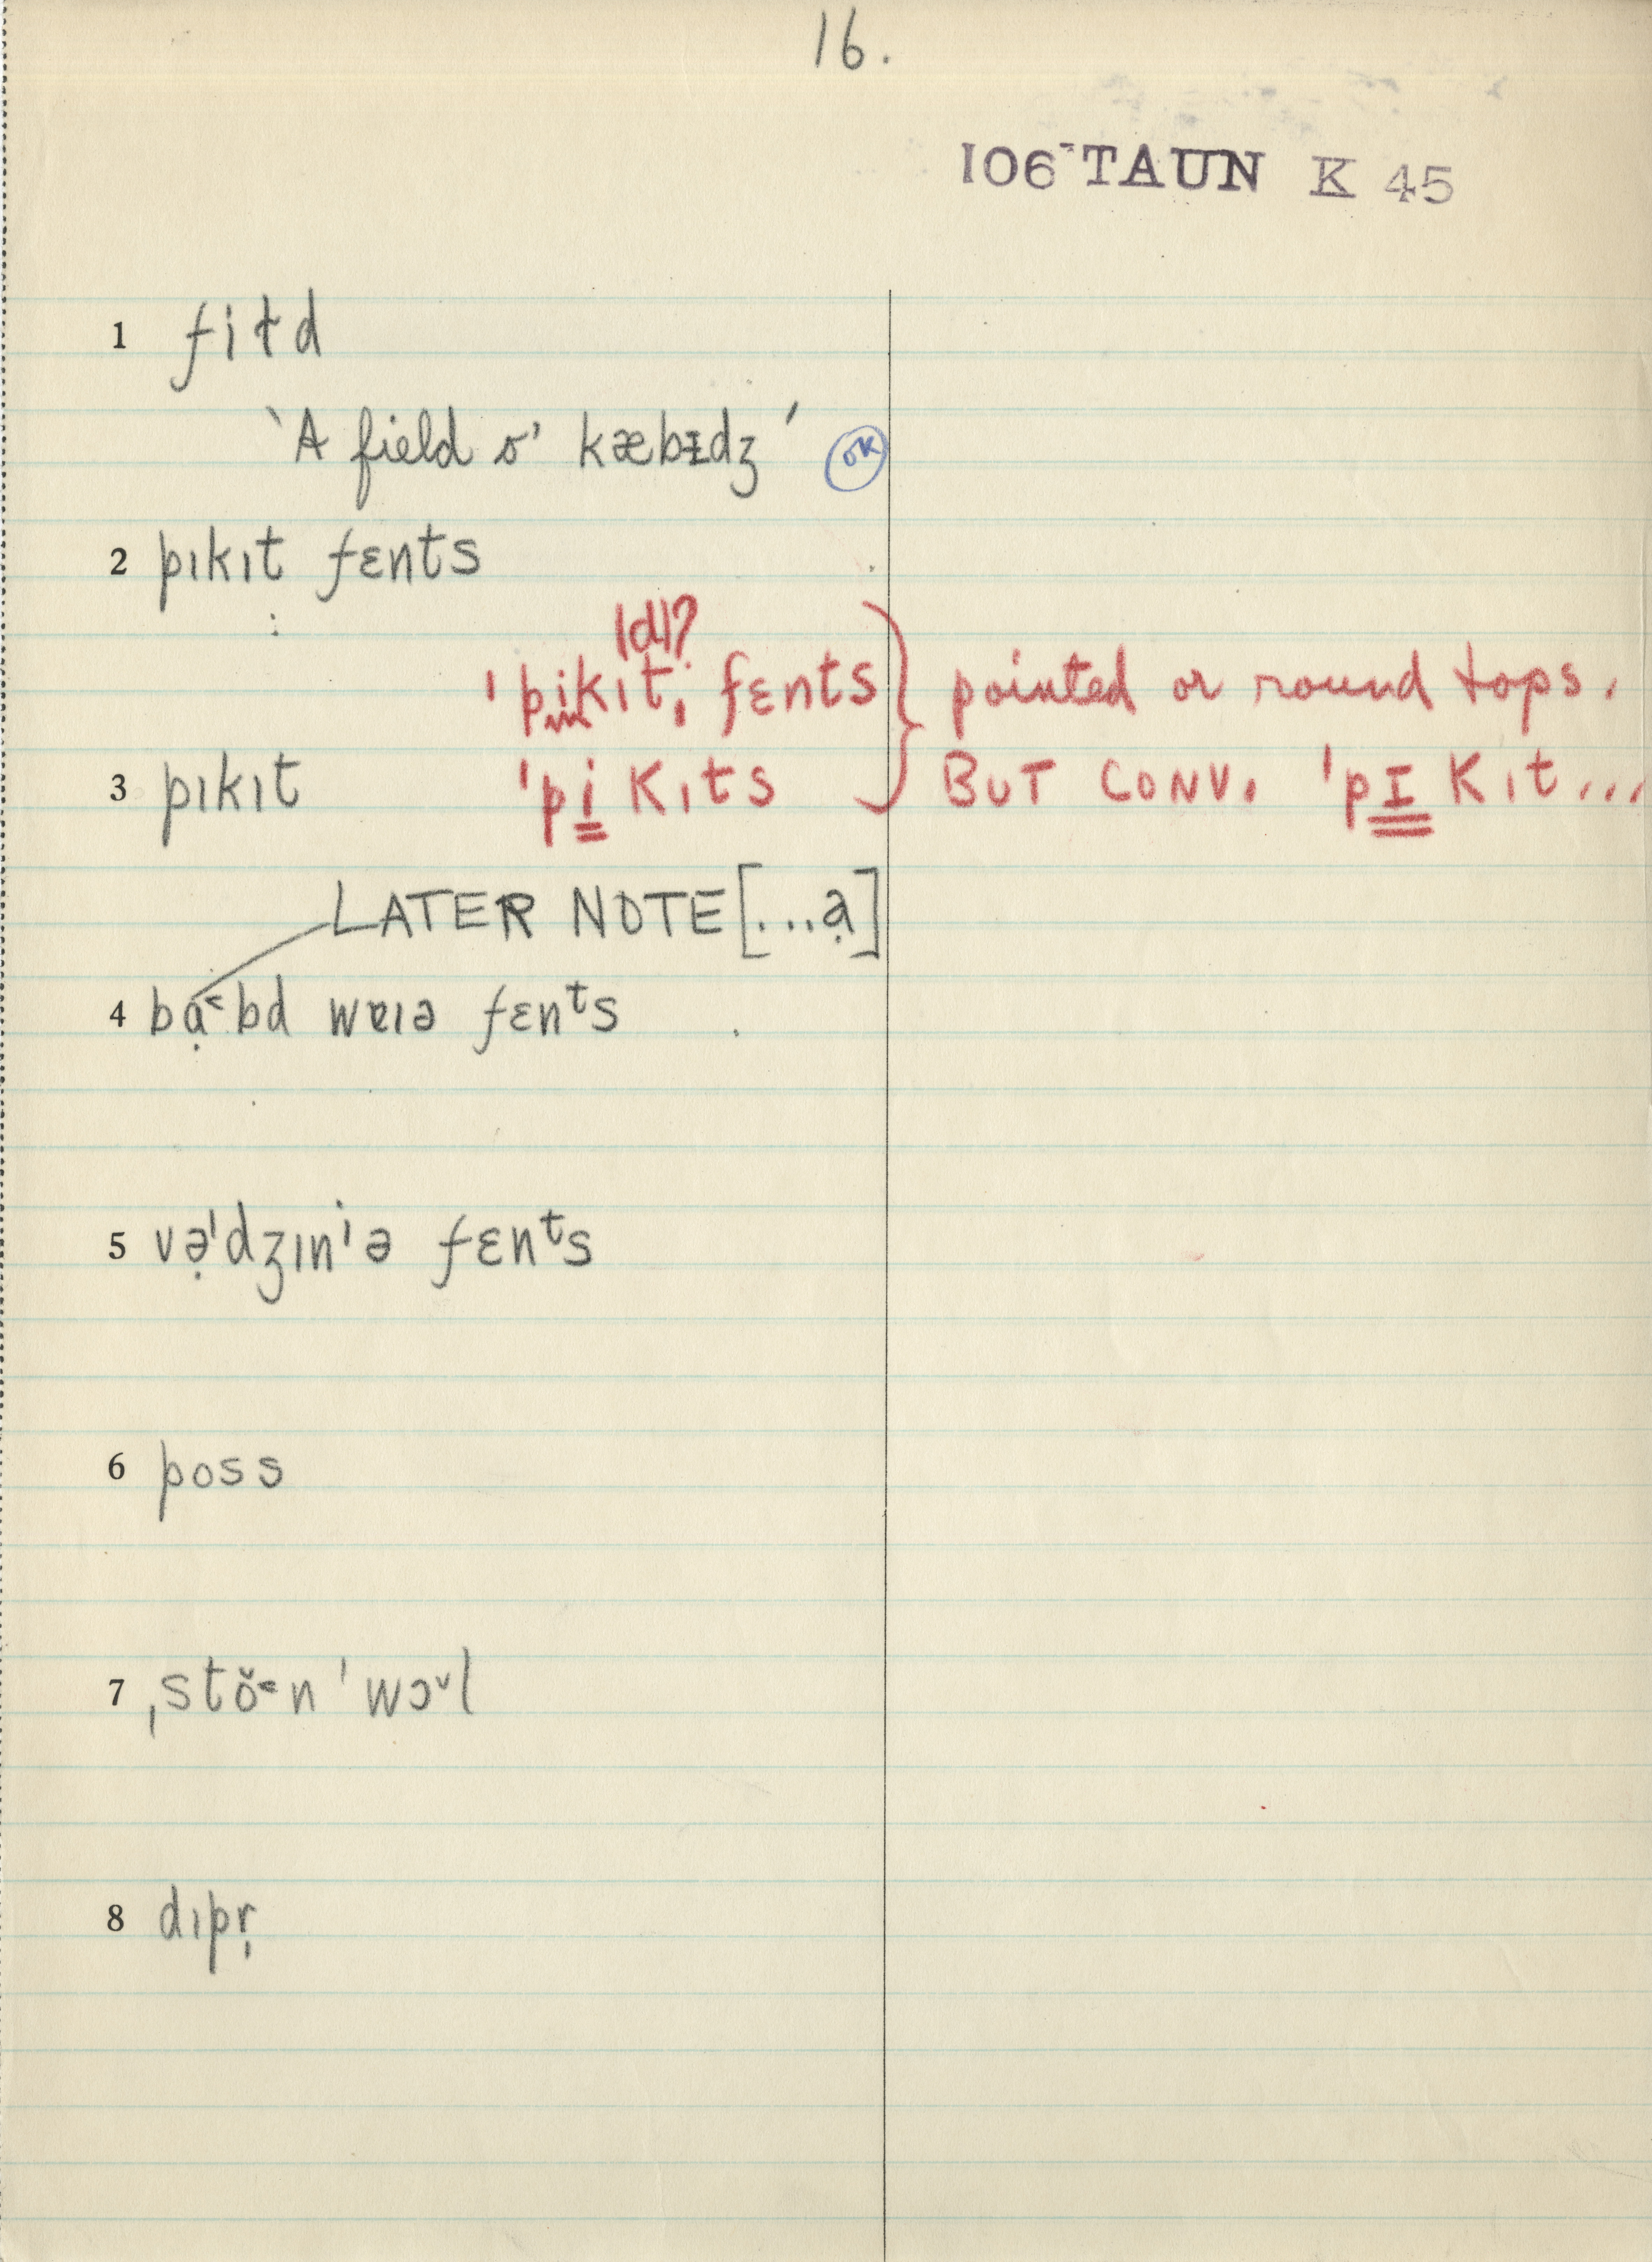 16.
106 TAUN K 45
1 fiɫd
‵A field o' kæbɪdʒ′ OK
2 pɪkɪt fɛnts
|d|?
ˈpikɪtˌ fɛnts } pointed or round tops.
3 pɪkɪt ˈpi̳kɪts BUT CONV. ˈpɪ̳kɪt...
LATER NOTE [...ạ]
4 bạ˂bd wɐɪə fɛnᵗs
5 və̣ˈdʒɪnˈə fɛnᵗs
6 poss
7 ˌstŏ˂n ˈwɔˇl
8 dɪpr̩